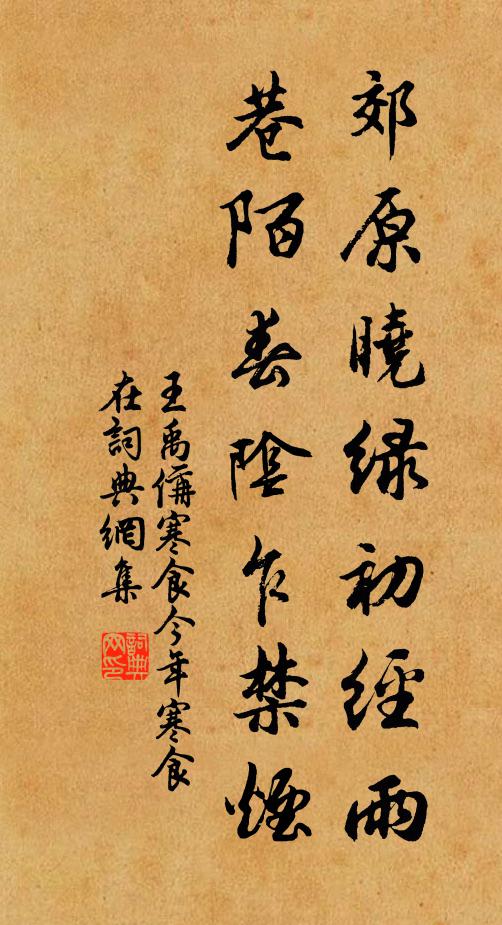 郊原曉綠初經雨
巷陌春陰乍禁煙
王禹偁寒食今年寒食
在詞典網集
詞典網印